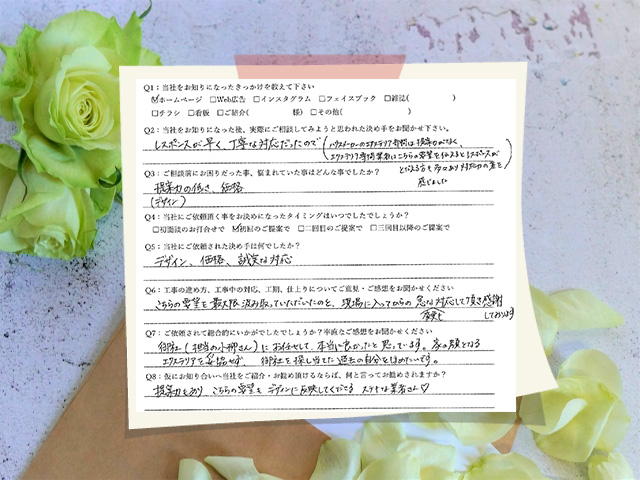 Q1：当社をお知りになったきっかけを教えて下さい
☑ホームページ □Web広告 □インスタグラム □フェイスブック □雑誌( )
□チラシ □看板 □ご紹介( 様) □その他( )
Q2：当社をお知りになった後、実際にご相談してみようと思われた決め手をお聞かせ下さい。
レスポンスが早く、丁寧な対応だったので (ハウスメーカーのエクステリア部門は提案力がなく、
エクステリア専門業者はこちらの要望を伝えるとレスポンスが
Q3：ご相談前にお困りだった事、悩まれていた事はどんな事でしたか？
感じました
提案力の低さ、価格
(デザイン)
Q4：当社にご依頼頂く事をお決めになったタイミングはいつでしたでしょうか？
□初面談のお打合せで ☑初回のご提案で □二回目のご提案で □三回目以降のご提案で
Q5：当社にご依頼された決め手は何でしたか？
デザイン、価格、誠実な対応
Q6：工事の進め方、工事中の対応、工期、仕上りについてご意見・ご感想をお聞かせください
こちらの要望を最大限汲み取っていただいたのと、現場に入ってからの急な変更も対応して頂き感謝
しております
Q7：ご依頼されて総合的にいかがでしたでしょうか？率直なご感想をお聞かせください
御社(担当の小柳さん)にお任せして、本当に良かったと思っています。家の顔となる
エクステリアで妥協せず、御社を探し当てた過去の自分をほめたいです。
Q8：仮にお知り合いへ当社をご紹介・お勧め頂けるならば、何と言ってお勧めされますか？
提案力もあり、こちらの要望もデザインに反映してくださるステキな業者さん♡